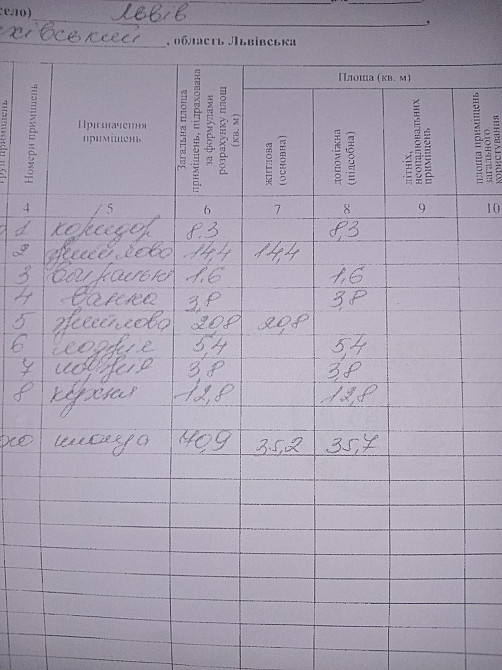 село) Львів
хівський, область Львівська
Площа (кв. м)
Номери приміщень
Призначення приміщень
Загальна площа приміщень, підрахована за формулами розрахунку площ (кв. м)
житлова (основна)
допоміжна (підсобна)
літніх, неопалювальних приміщень
площа приміщень загального користування
4 5 6 7 8 9 10
1 коридор 8,3 8,3
2 житлова 14,4 14,4
3 1,6 1,6
4 ванна 3,8 3,8
5 житлова 20,8 20,8
6 лоджия 5,4 5,4
7 лоджия 3,8 3,8
8 кухня 12,8 12,8
площа 70,9 35,2 35,7